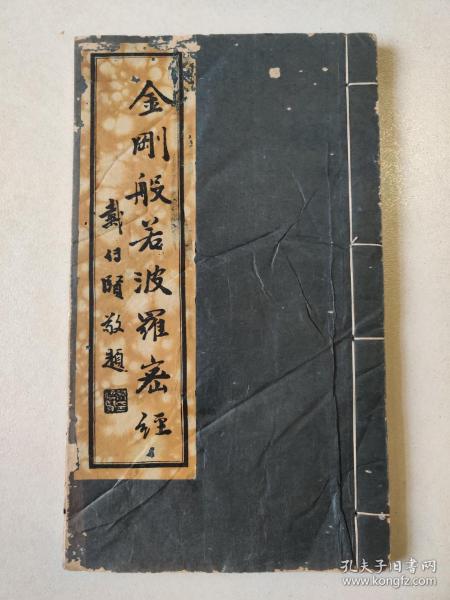 金剛般若波羅蜜經
戴傳賢敬題
孔夫子旧书网
www.kongfz.com